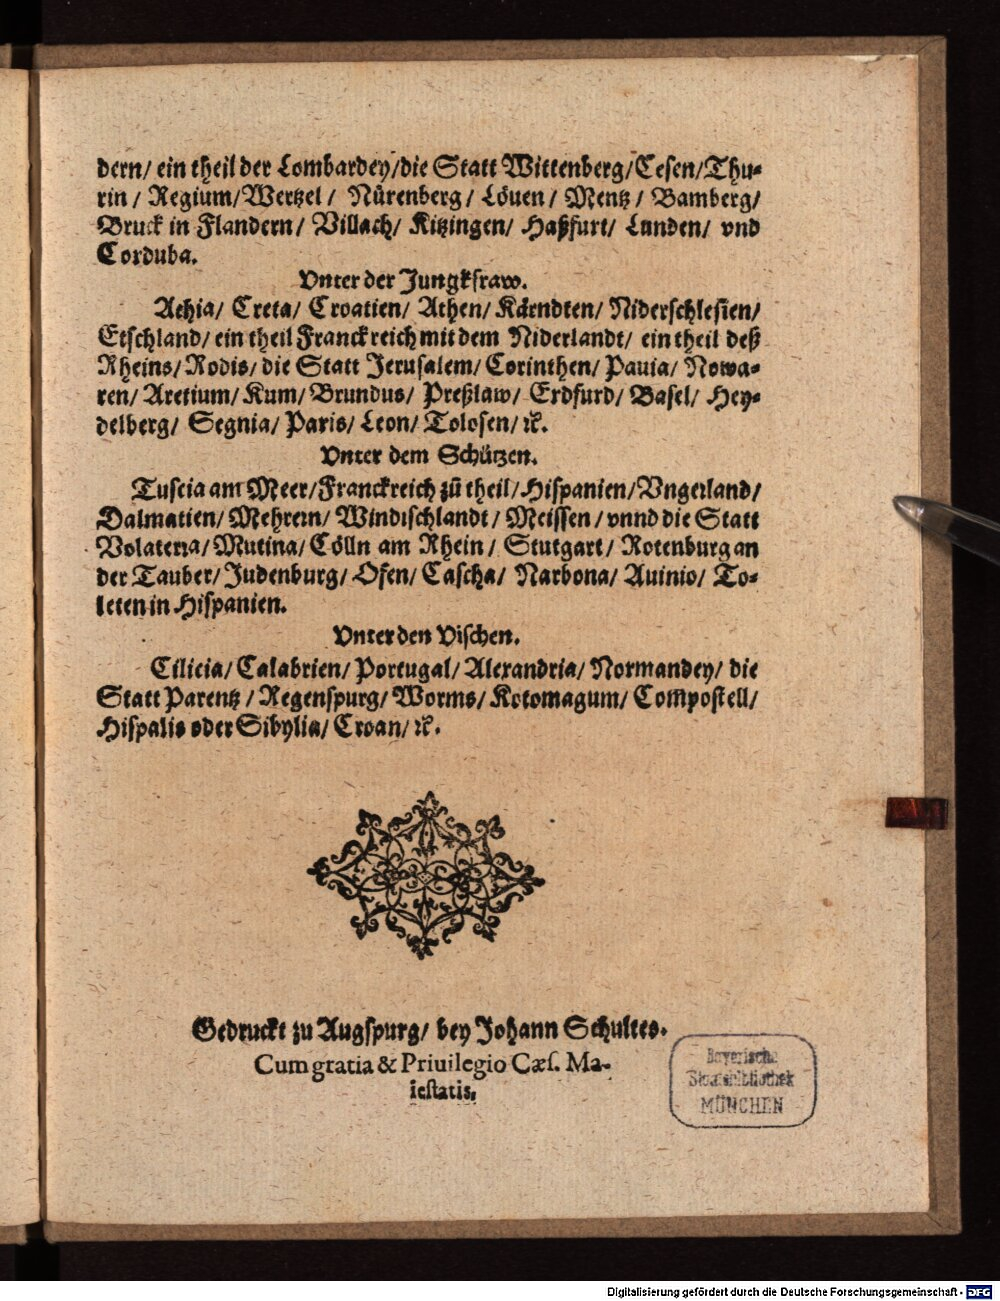 dern/ ein theil der Lombardey/die Statt Wittenberg/Cesen/Thu-
rin / Regium/Wertzel / Nürenberg / Löuen / Mentz / Bamberg/
Bruck in Flandern/ Villach/ Kitzingen/ Haßfurt/ Lunden/ vnd
Corduba.
Vnter der Jungkfraw.
Achia/ Creta/ Croatien/ Athen/ Kärndten/ Niderschlesien/
Etschland/ ein theil Franckreich mit dem Niderlandt/ ein theil deß
Rheins/Rodis/ die Statt Jerusalem/ Corinthen/ Pauia/ Nowa-
ren/ Aretium/ Kum/ Brundus/ Preßlaw/ Erdfurd/ Basel/ Hey-
delberg/ Segnia/ Paris/ Leon/ Tolosen/ ꝛc.
Vnter dem Schützen.
Tuscia am Meer/Franckreich zů theil/Hispanien/Vngerland/
Dalmatien/ Mehrern/ Windischlandt / Meissen/ vnnd die Statt
Volaterra/ Mutina/ Cölln am Rhein/ Stutgart/ Rotenburg an
der Tauber/ Judenburg/ Ofen/ Cascha/ Narbona/ Auinio/ To-
leten in Hispanien.
Vnter den Vischen.
Cilicia/ Calabrien/ Portugal/ Alexandria/ Normandey/ die
Statt Parentz / Regenspurg/ Worms/ Rotomagum/ Compostell/
Hispalis oder Sibylia/ Croan/ ꝛc.
Gedruckt zu Augspurg/ bey Johann Schultes.
Cum gratia & Priuilegio Cæs. Ma-
iestatis.
Bayerische
Staatsbibliothek
MÜNCHEN
Digitalisierung gefördert durch die Deutsche Forschungsgemeinschaft - DFG